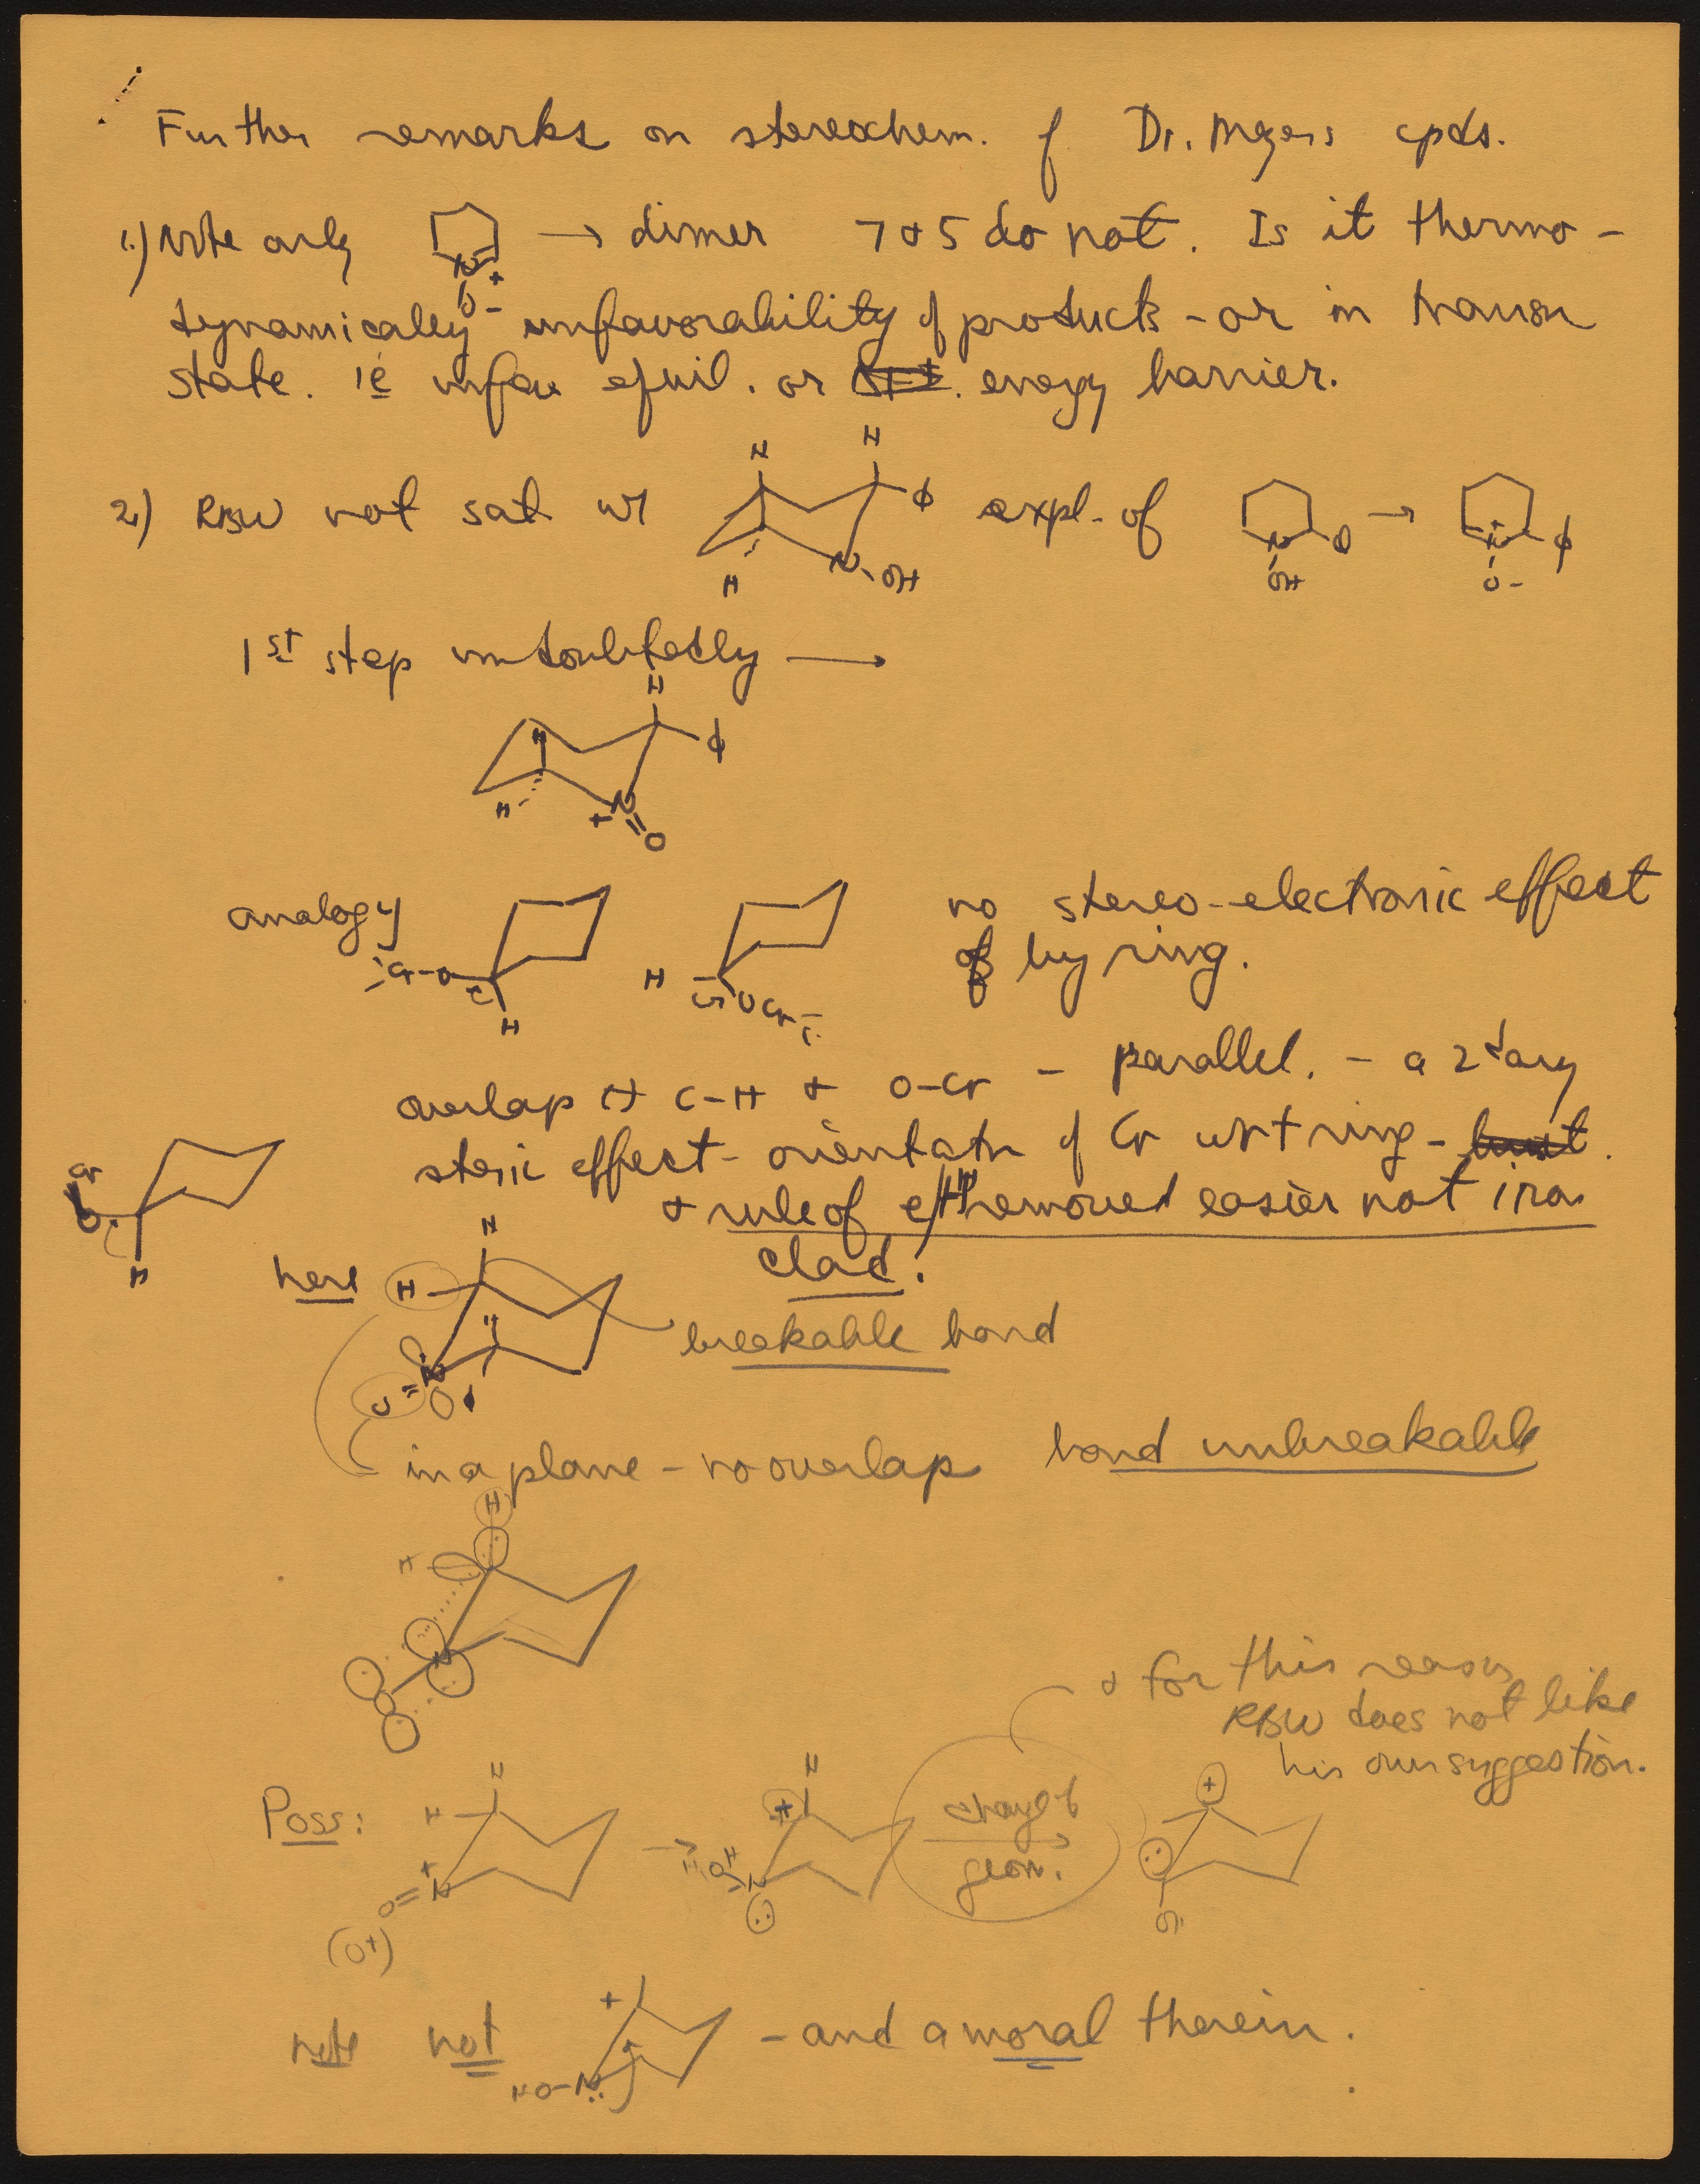 Further remarks on stereochem. of Dr. Meyers cpds.
1.) Note only N + O - → dimer 7 & 5 do not. Is it thermo-
dynamically unfavorability of products - or in transn
state. ie unfav equil. or energy barrier.
2) RBW not sat w/ H H H φ N OH expl. of N OH φ → N + O - φ
1st step undoubtedly →
H H H φ + N = O
analogy Cr-O C H H C O Cr no stereo-electronic effect
of by ring.
overlap C-H & O-Cr - parallel. - a 2dary
steric effect - orientatn of Cr wrt ring -
& rule of e/H removed easier not iron
clad!
Cr O H
here H H H N + = O φ breakable bond
in a plane - no overlap bond unbreakable
H H N
& for this reason
RBW does not like
his own suggestion.
Poss: H H + N = O (O+) → H + H O N : change of geom. → + : O
note not + HO-N : - and a moral therein.